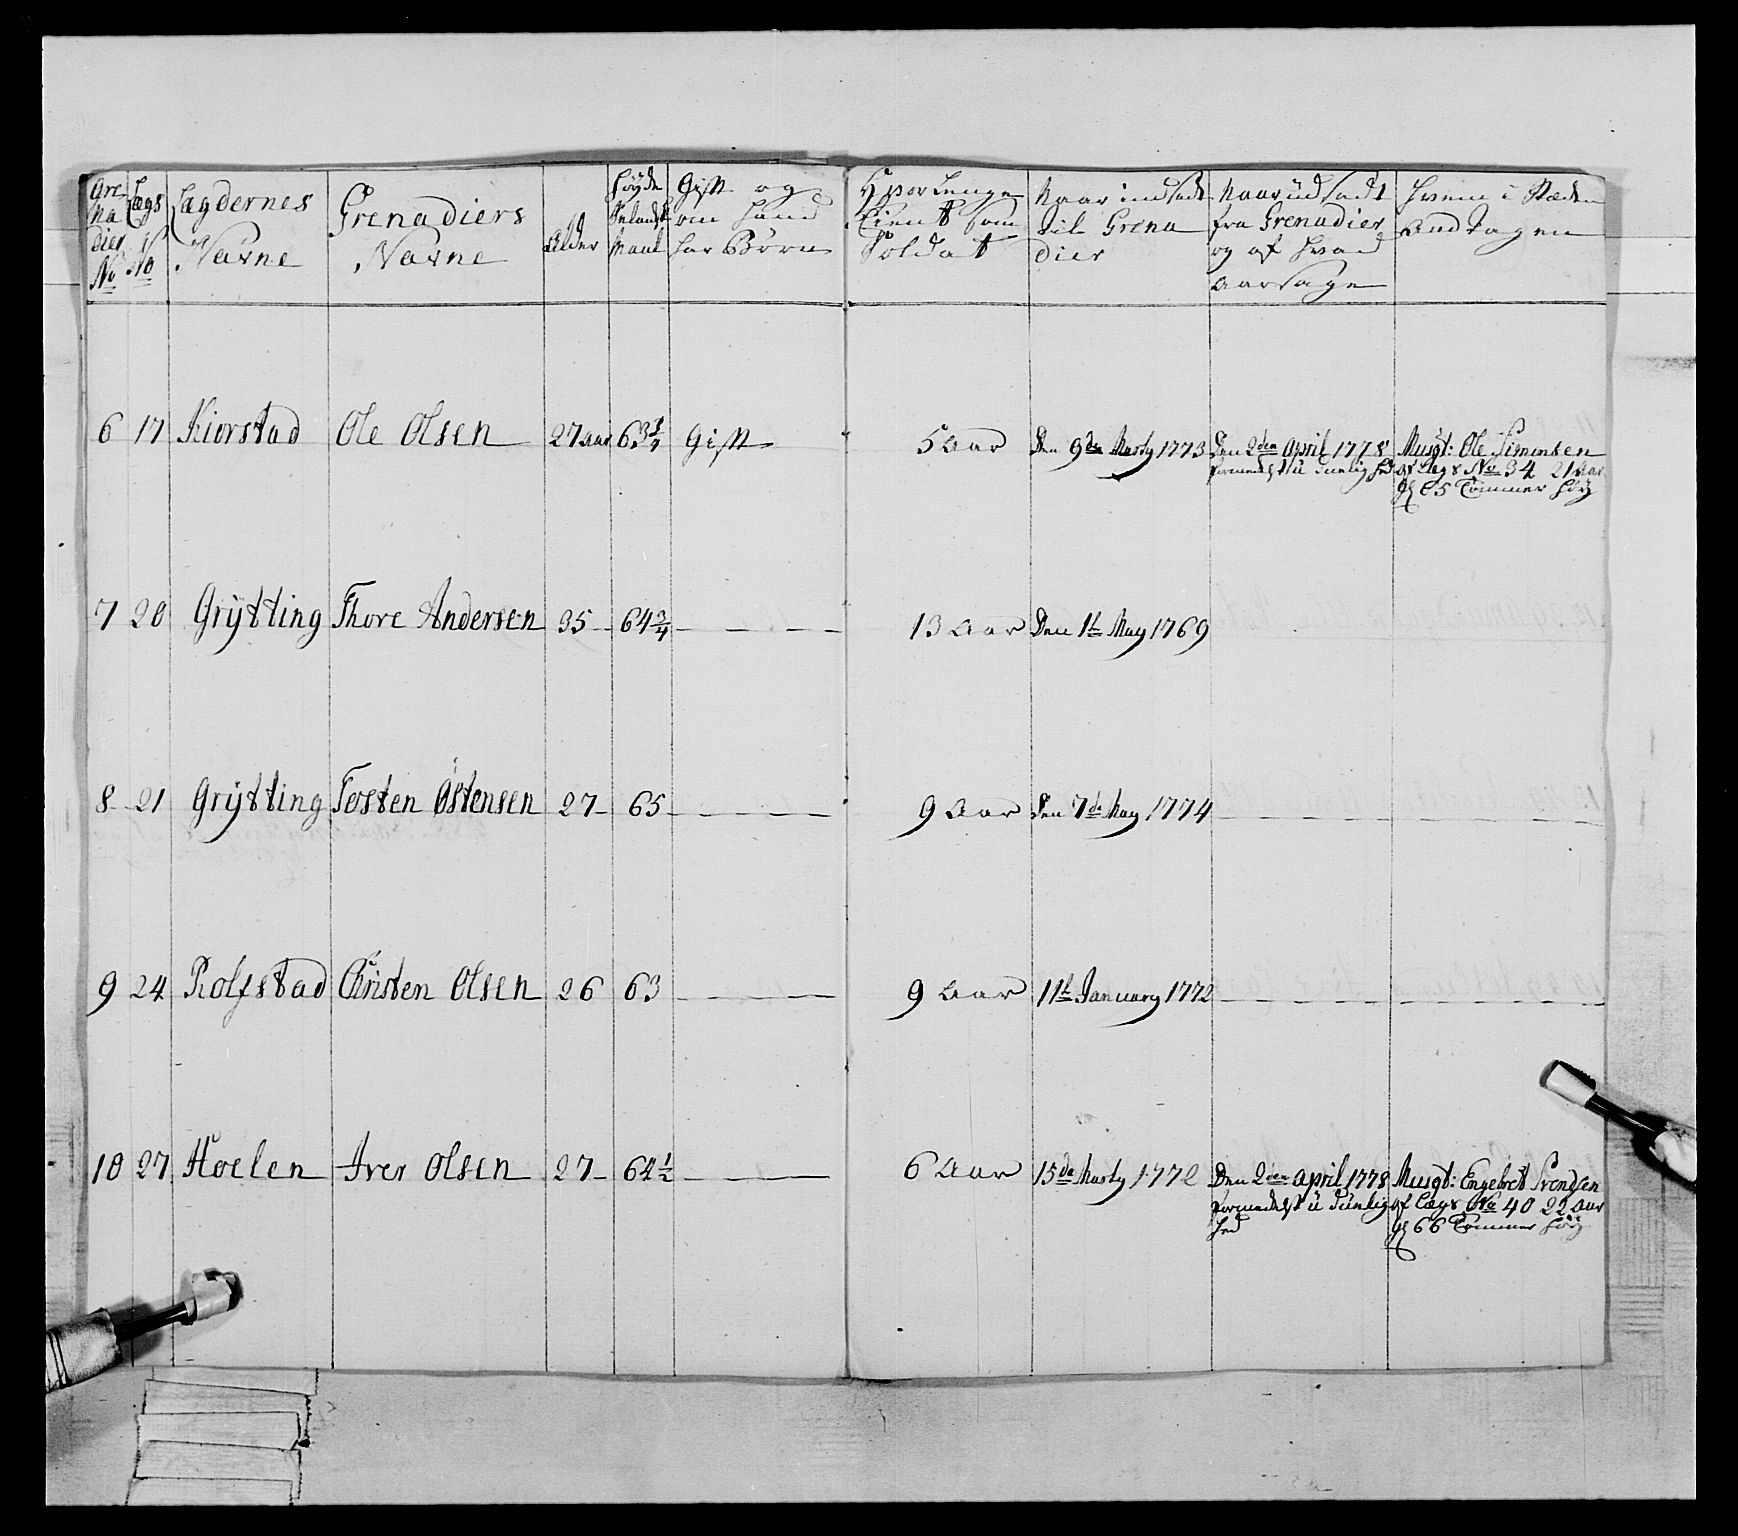 Gre
na
dier
No
Lægs
No
Lægdernes
Navne
Grenadiers
Navne
Alder
Høyde
Sælands
Maal
Gift og
om hand
har Børn
Hvor Lenge
Tient som
Soldat
Naar indsadt
til Grena
dier
Naar üdsadt
fra Grenadier
og af hvad
Aarsage
Hvem i Stæden
Andtagen
6 17 Kiorstad Ole Olsen 27 aar 63 3/4 Gift 5 Aar Den 9de Marty 1773 Den 2den April 1778 Musqt: Ole Simonsen
formedelst ü Tienlighed af Lægs No 34 21 Aar
og 65 Tommer høy
7 20 Grÿtting Thore Andersen 35 64 3/4 13 Aar Den 1t May 1769
8 21 Grÿtting Tosten Østensen 27 65 9 Aar Den 7de May 1774
9 24 Rolfstad Christen Olsen 26 63 9 Aar 11t January 1772
10 27 Hoelen Iver Olsen 27 64 1/2 6 Aar 15de Marty 1772 Den 2den April 1778 Musqt: Engebret Svendsen
formedelst ü Tienlig af Lægs No 40 22 Aar
hed og 66 Tommer høy